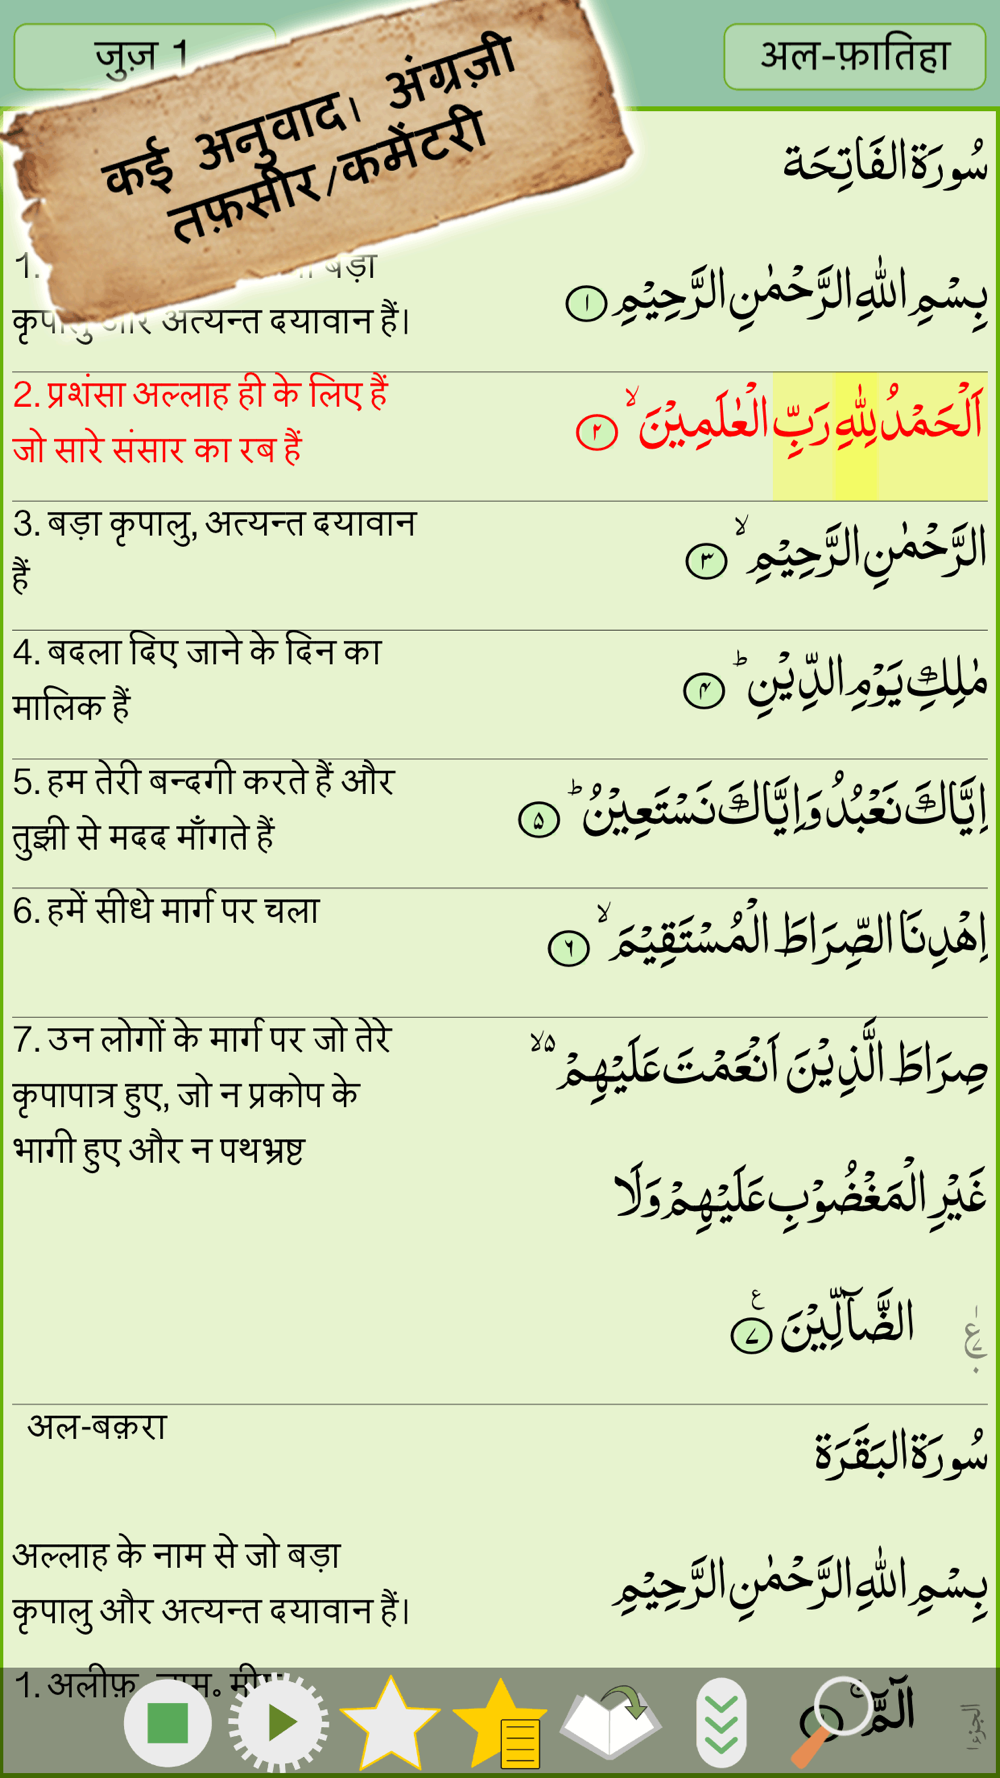 जुज़ 1
अल-फ़ातिहा
कई अनुवाद। अंग्रज़ी
तफ़सीर/कमेंटरी
سُورَة الفَاتِحَة
1. बड़ा
कृपालु और अत्यन्त दयावान हैं।
بِسْمِ اللّٰهِ الرَّحْمٰنِ الرَّحِيْمِ ١
2. प्रशंसा अल्लाह ही के लिए हैं
जो सारे संसार का रब हैं
اَلْحَمْدُ لِلّٰهِ رَبِّ الْعٰلَمِيْنَ ۙ ٢
3. बड़ा कृपालु, अत्यन्त दयावान
हैं
الرَّحْمٰنِ الرَّحِيْمِ ۙ ٣
4. बदला दिए जाने के दिन का
मालिक हैं
مٰلِكِ يَوْمِ الدِّيْنِ ؕ ۴
5. हम तेरी बन्दगी करते हैं और
तुझी से मदद माँगते हैं
اِيَّاكَ نَعْبُدُ وَاِيَّاكَ نَسْتَعِيْنُ ؕ ۵
6. हमें सीधे मार्ग पर चला
اِهْدِنَا الصِّرَاطَ الْمُسْتَقِيْمَ ۙ ٦
7. उन लोगों के मार्ग पर जो तेरे
कृपापात्र हुए, जो न प्रकोप के
भागी हुए और न पथभ्रष्ट
صِرَاطَ الَّذِيْنَ اَنْعَمْتَ عَلَيْهِمْ ۙ۵
غَيْرِ الْمَغْضُوْبِ عَلَيْهِمْ وَلَا
الضَّآلِّيْنَ ٧ ع
अल-बक़रा
سُورَة البَقَرَة
अल्लाह के नाम से जो बड़ा
कृपालु और अत्यन्त दयावान हैं।
بِسْمِ اللّٰهِ الرَّحْمٰنِ الرَّحِيْمِ
1. अलीफ़॰
الٓمّٓ
الجزء ١